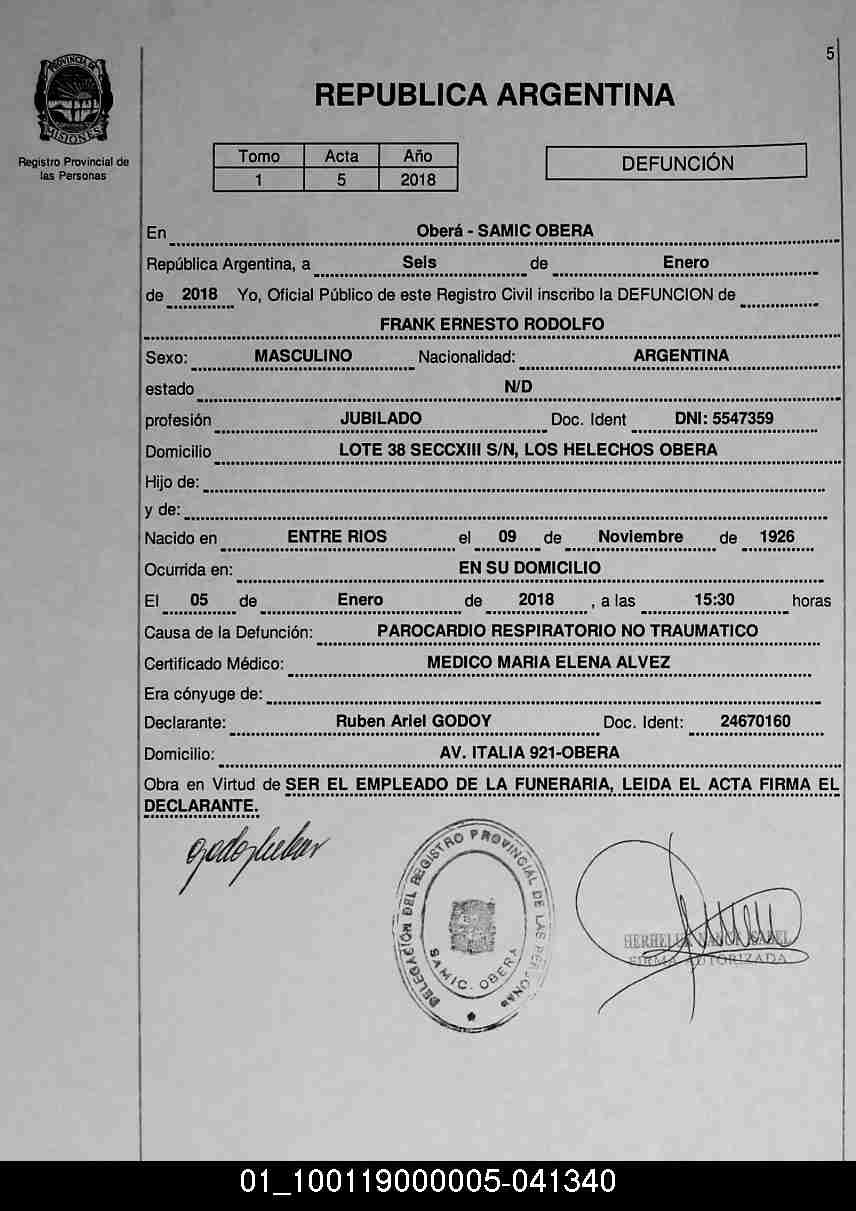 5
PROVINCIA DE
MISIONES
Registro Provincial de
las Personas
REPUBLICA ARGENTINA
Tomo Acta Año
1 5 2018
DEFUNCIÓN
En Oberá - SAMIC OBERA
República Argentina, a Seis de Enero
de 2018 Yo, Oficial Público de este Registro Civil inscribo la DEFUNCION de
FRANK ERNESTO RODOLFO
Sexo: MASCULINO Nacionalidad: ARGENTINA
estado N/D
profesión JUBILADO Doc. Ident DNI: 5547359
Domicilio LOTE 38 SECCXIII S/N, LOS HELECHOS OBERA
Hijo de:
y de:
Nacido en ENTRE RIOS el 09 de Noviembre de 1926
Ocurrida en: EN SU DOMICILIO
El 05 de Enero de 2018 , a las 15:30 horas
Causa de la Defunción: PAROCARDIO RESPIRATORIO NO TRAUMATICO
Certificado Médico: MEDICO MARIA ELENA ALVEZ
Era cónyuge de:
Declarante: Ruben Ariel GODOY Doc. Ident: 24670160
Domicilio: AV. ITALIA 921-OBERA
Obra en Virtud de SER EL EMPLEADO DE LA FUNERARIA, LEIDA EL ACTA FIRMA EL
DECLARANTE.
DELEGACIÓN DEL REGISTRO PROVINCIAL DE LAS PERSONAS
SAMIC. OBERA
FIRMA AUTORIZADA
01_100119000005-041340